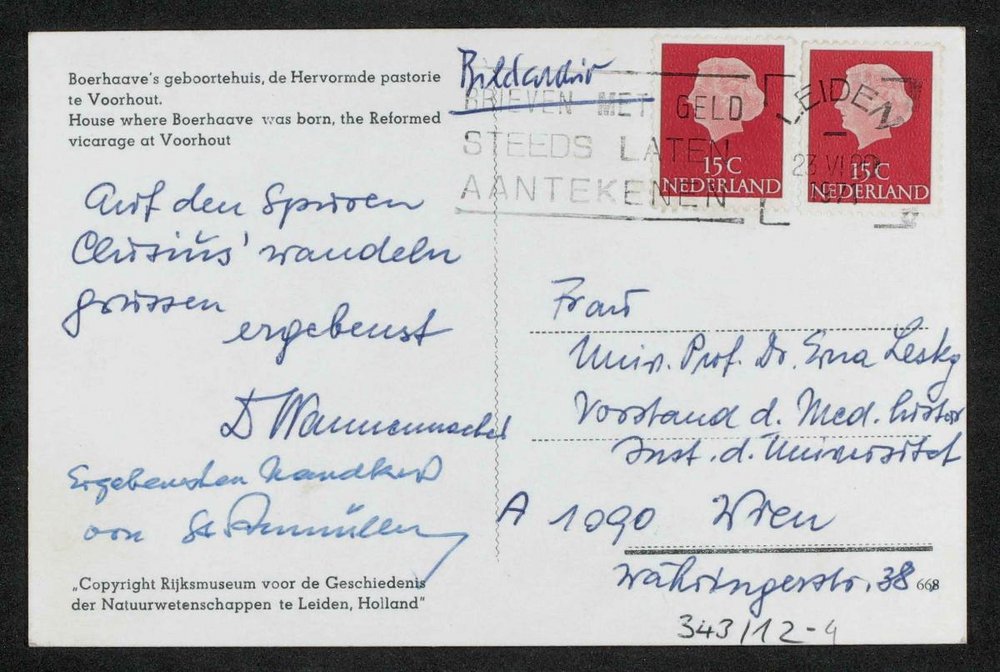 Boerhaave's geboortehuis, de Hervormde pastorie
te Voorhout.
House where Boerhaave was born, the Reformed
vicarage at Voorhout
Bildarchiv
BRIEVEN MET GELD
STEEDS LATEN
AANTEKENEN
LEIDEN
23 VI
15 C
NEDERLAND
15 C
NEDERLAND
Auf den Spuren
Clusius' wandeln
grüssen
ergebenst
D Wannenmacher
Ergebensten Handkuß
von
Frau
Univ. Prof. Dr. Erna Lesky
Vorstand d. Med. histor
Inst. d. Universität
A 1090 Wien
Währingerstr. 38
668
343/12-4
„Copyright Rijksmuseum voor de Geschiedenis
der Natuurwetenschappen te Leiden, Holland"